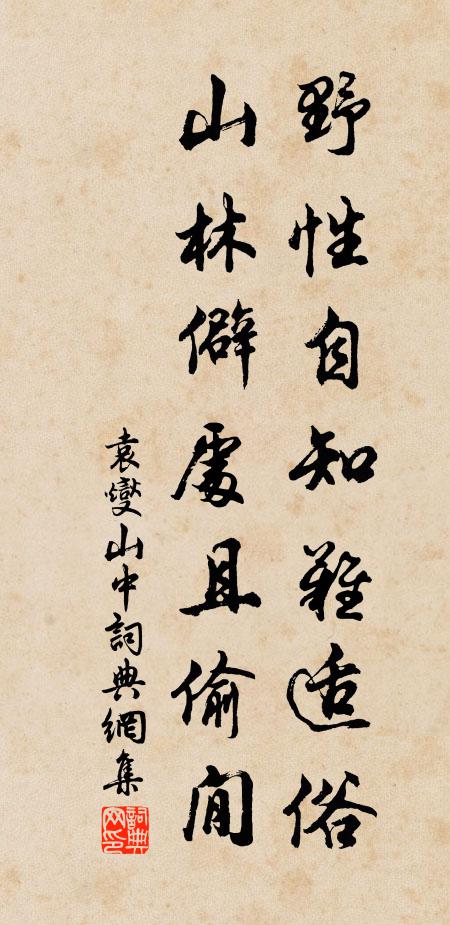 野性自知難适俗
山林僻處且偷閒
袁燮山中詞典網集
詞典网印